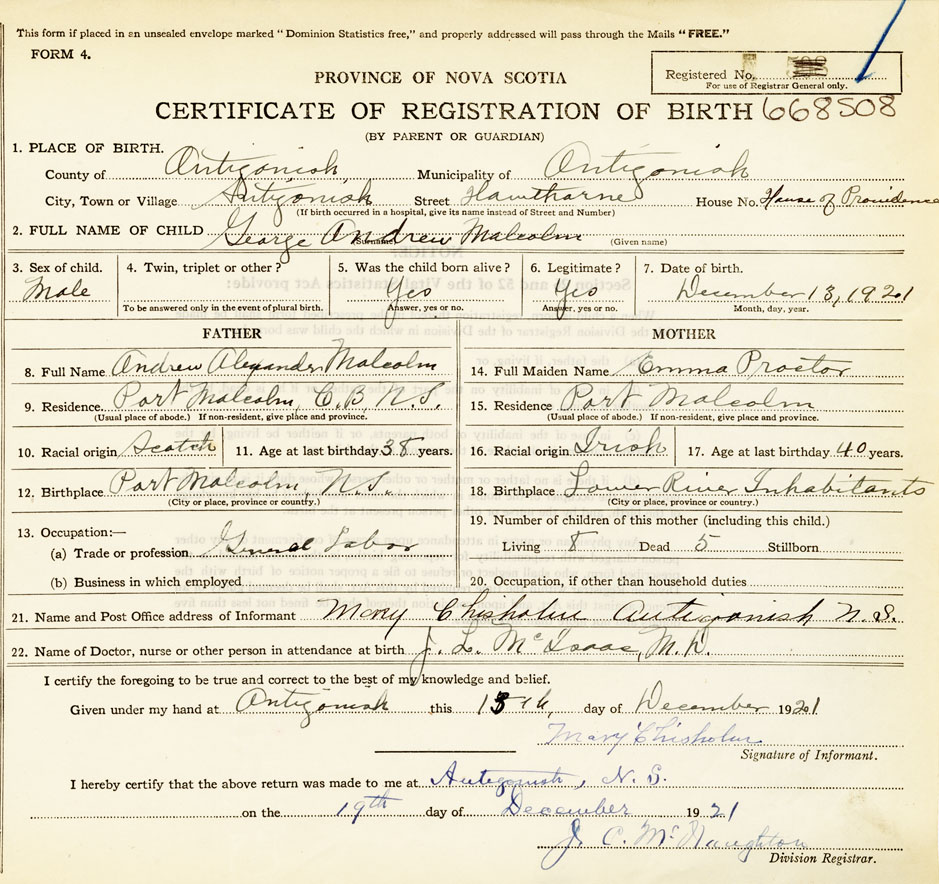 This form if placed in an unsealed envelope marked "Dominion Statistics free," and properly addressed will pass through the Mails "FREE."
FORM 4.
Registered No.
For use of Registrar General only.
PROVINCE OF NOVA SCOTIA
CERTIFICATE OF REGISTRATION OF BIRTH 668508
(BY PARENT OR GUARDIAN)
1. PLACE OF BIRTH.
County of Antigonish Municipality of Antigonish
City, Town or Village Antigonish Street Hawthorne House No. House of Providence
(If birth occurred in a hospital, give its name instead of Street and Number)
2. FULL NAME OF CHILD George Andrew Malcolm
(Surname) (Given name)
3. Sex of child. 4. Twin, triplet or other? 5. Was the child born alive? 6. Legitimate? 7. Date of birth.
Male Yes Yes December 13, 1921
To be answered only in the event of plural birth. Answer, yes or no. Answer, yes or no. Month, day, year.
FATHER MOTHER
8. Full Name Andrew Alexander Malcolm 14. Full Maiden Name Emma Proctor
9. Residence. Port Malcolm, C. B N.S. 15. Residence Port Malcolm
(Usual place of abode.) If non-resident, give place and province. (Usual place of abode.) If non-resident, give place and province.
10. Racial origin Scotch 11. Age at last birthday 38 years. 16. Racial origin Irish 17. Age at last birthday 40 years.
12. Birthplace Port Malcolm, N.S. 18. Birthplace Lower River Inhabitants
(City or place, province or country.) (City or place, province or country.)
13. Occupation:— 19. Number of children of this mother (including this child.)
(a) Trade or profession General Labor Living 8 Dead 5 Stillborn
(b) Business in which employed 20. Occupation, if other than household duties
21. Name and Post Office address of Informant Mary Chisholm Antigonish N.S.
22. Name of Doctor, nurse or other person in attendance at birth J. L. McIsaac, M.D.
I certify the foregoing to be true and correct to the best of my knowledge and belief.
Given under my hand at Antigonish this 15th, day of December 1921
Mary Chisholm
Signature of Informant.
I hereby certify that the above return was made to me at Antigonish, N.S.
on the 19th day of December 1921
J. C. McNaughton
Division Registrar.